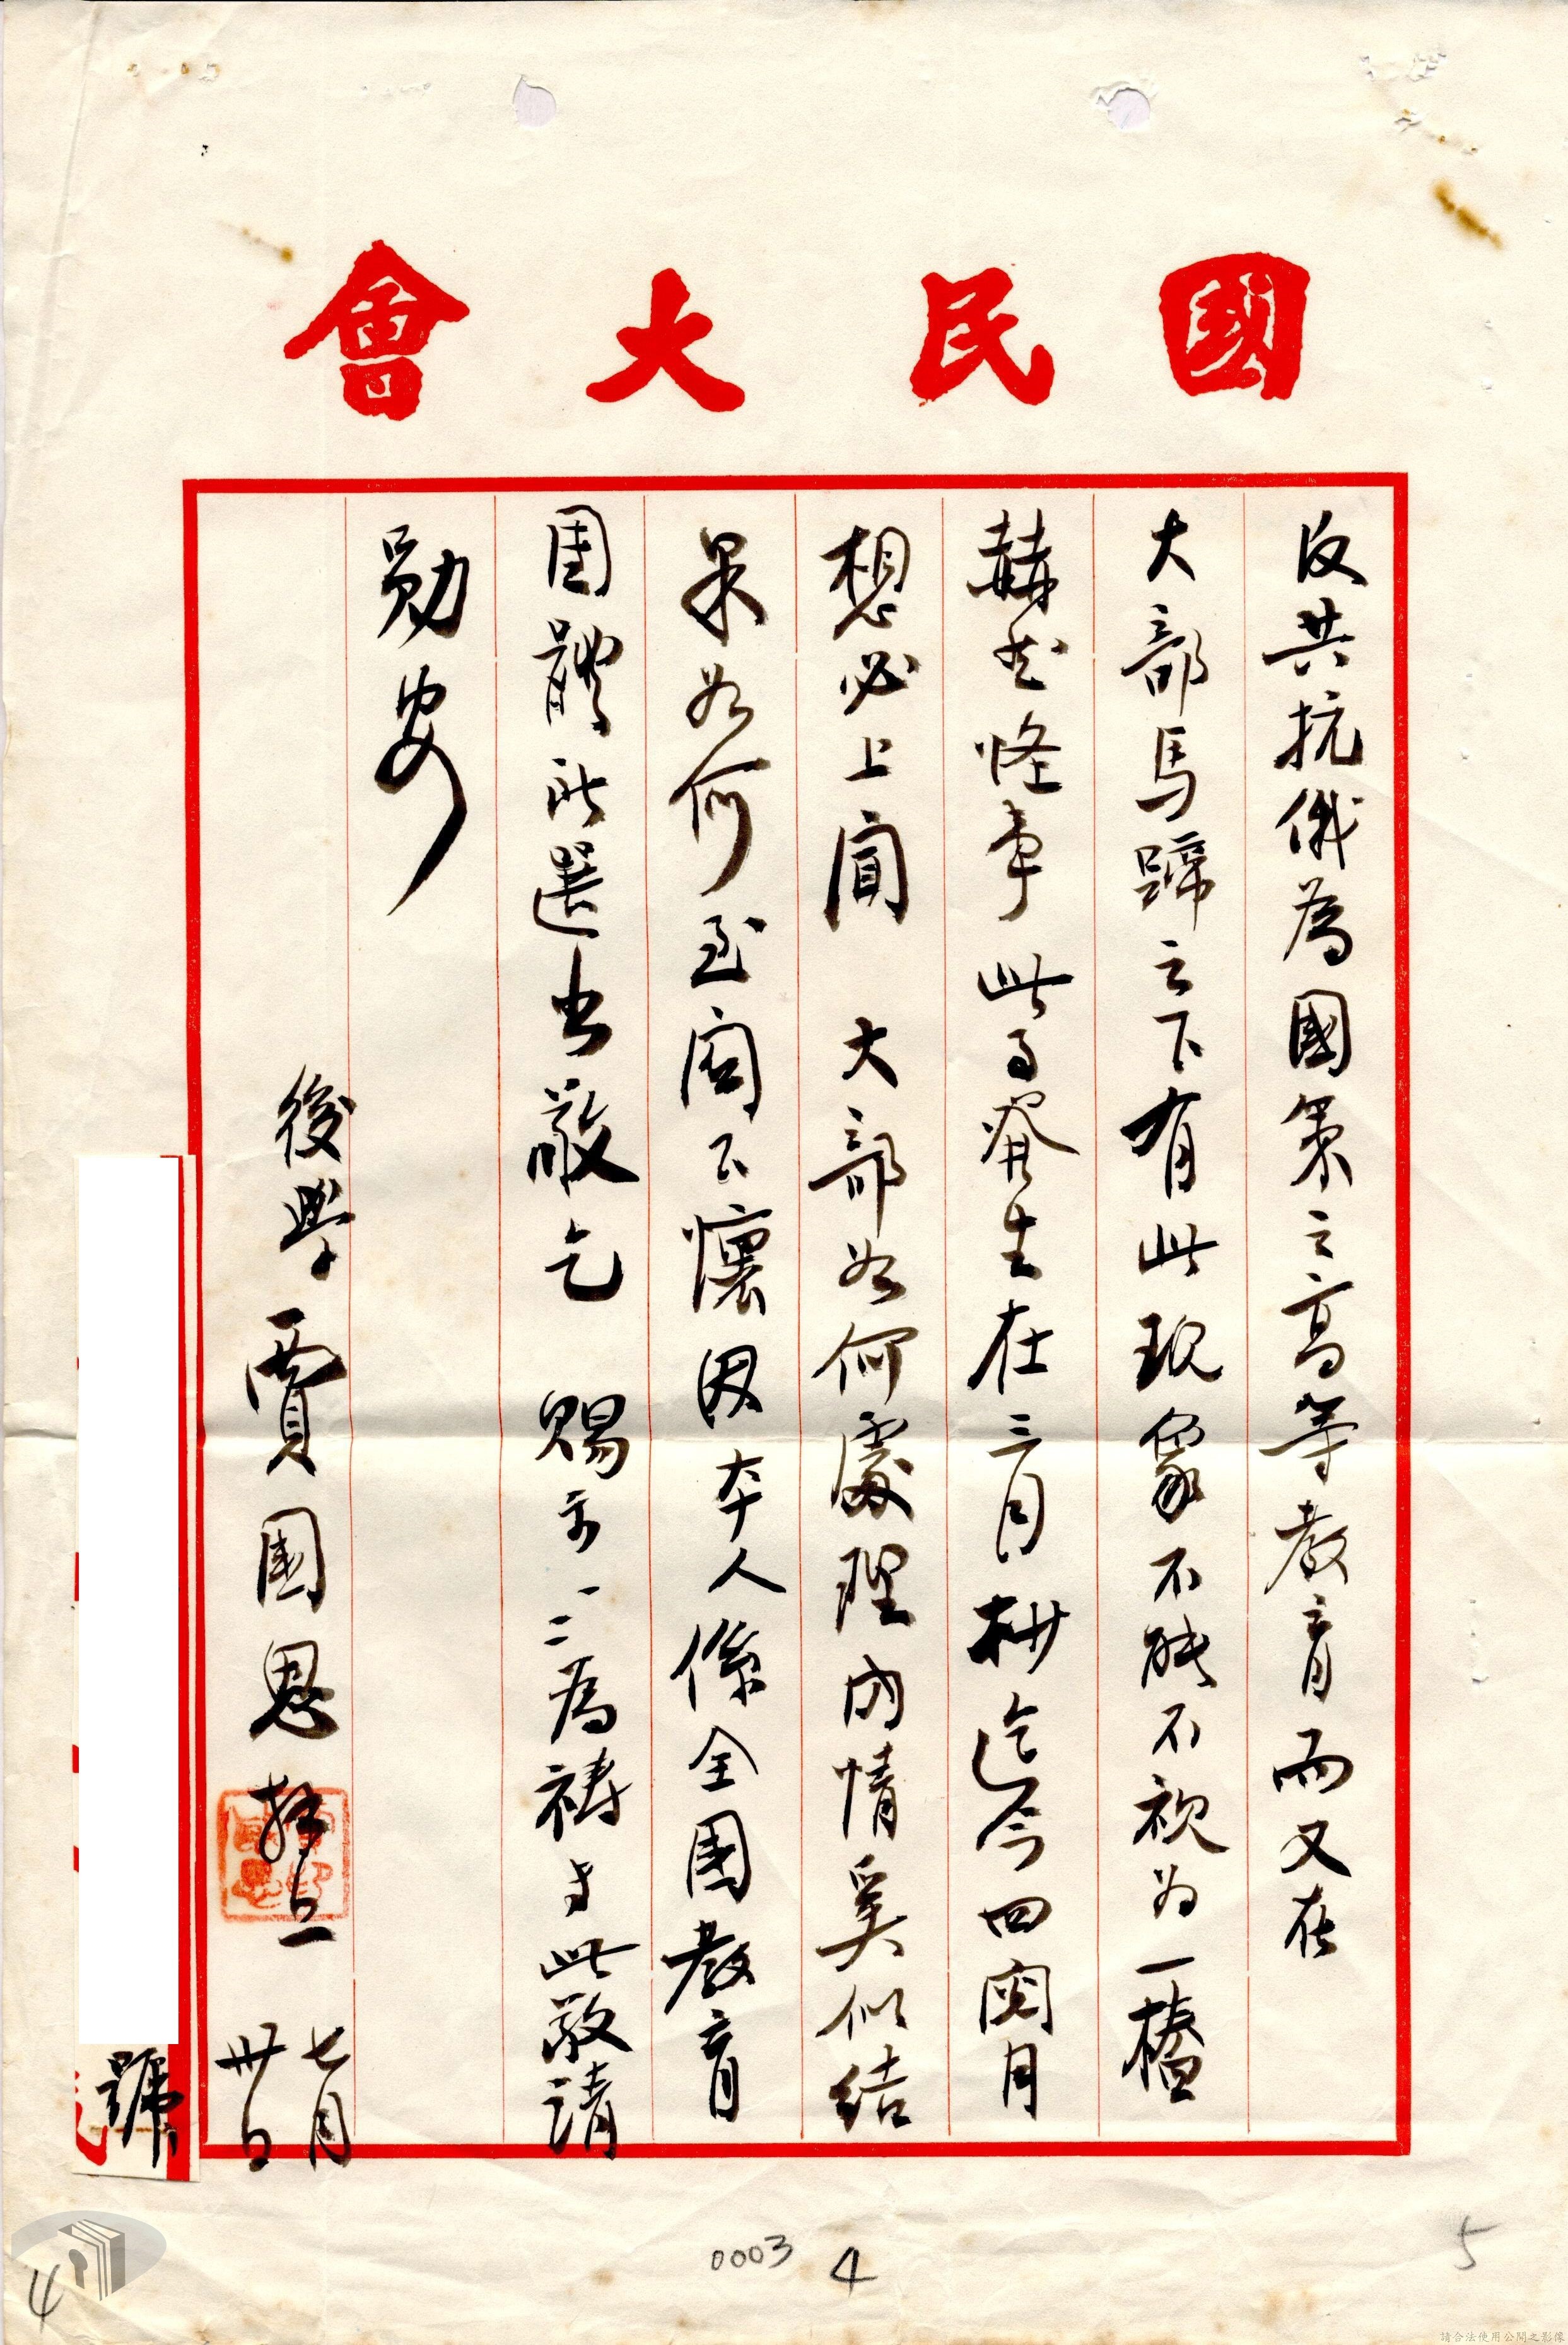 國民大會
反共抗俄為國策之高等教育而又在
大部馬蹄之下有此現象不能不視為一樁
赫然怪事此事發生在三月杪迄今四閱月
想必上聞 大部如何處理內情奚似結
果如何至關下懷因本人係全國教育
團體所選出敬乞 賜示一二為禱專此敬請
勛安
後學賈國恩拜上 七月卅日
號
0003
4
5
4
請合法使用公開之影像